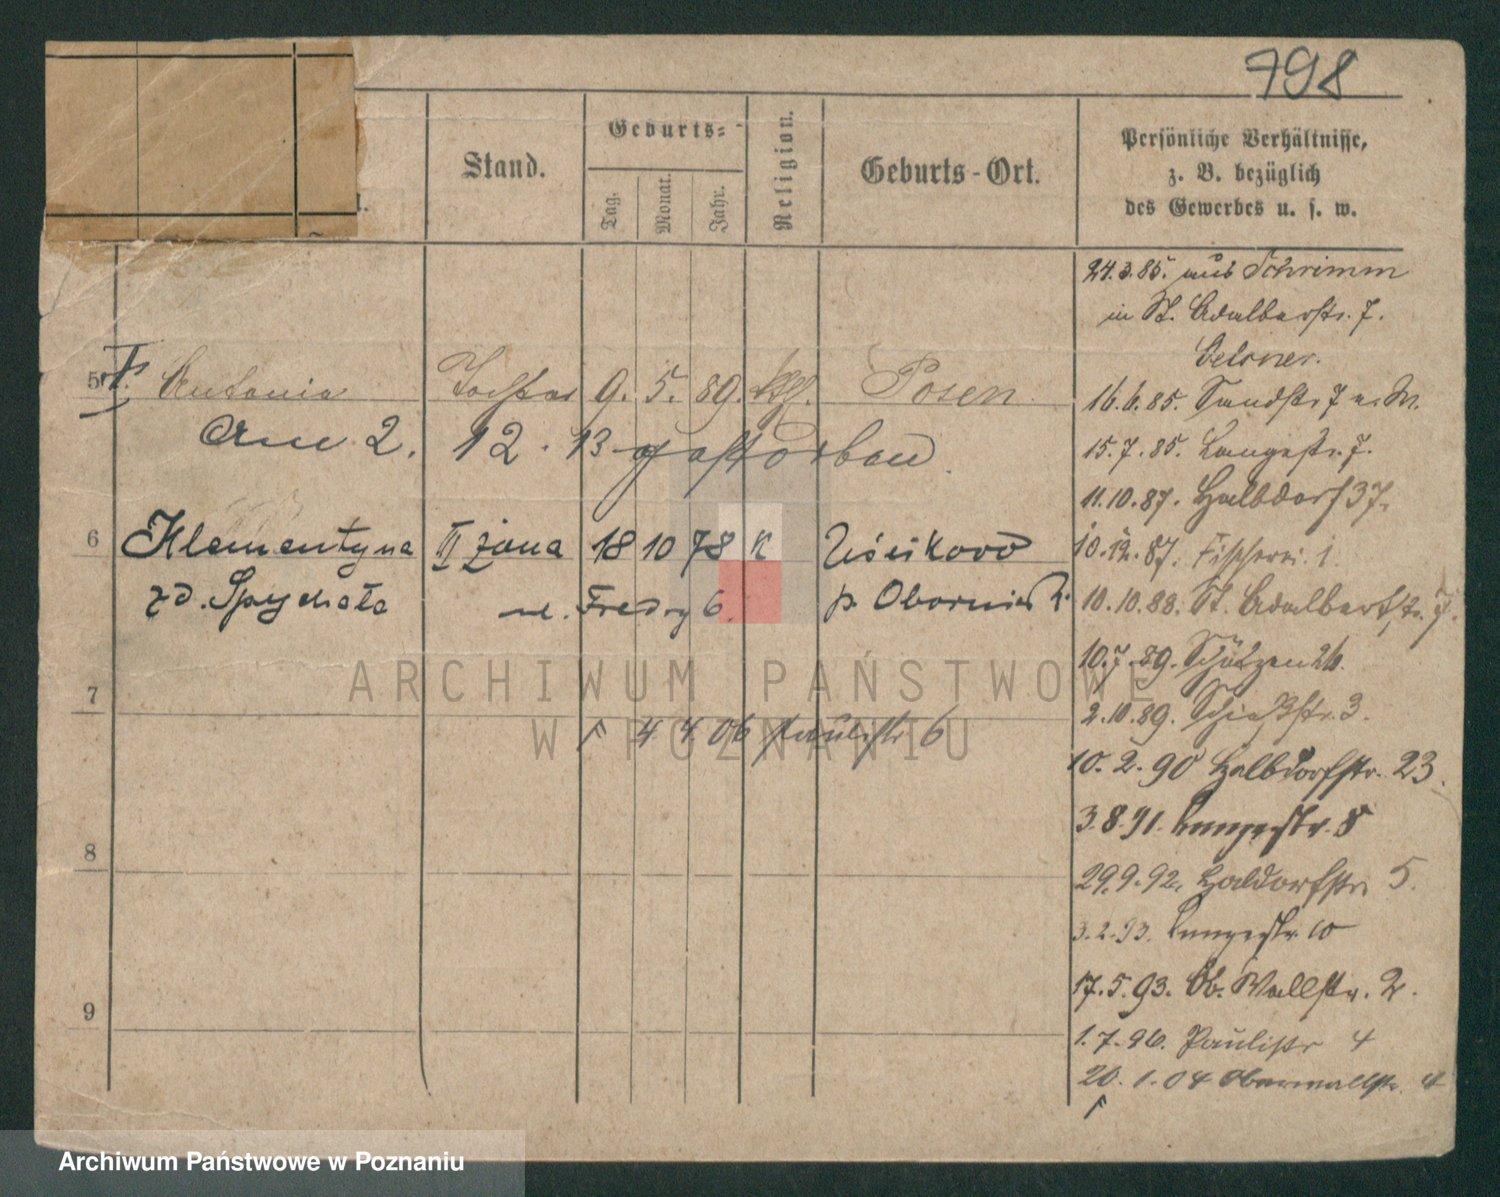 798
Stand.
Geburts-
Tag.
Monat.
Jahr.
Religion.
Geburts-Ort.
Persönliche Verhältnisse,
z. B. bezüglich
des Gewerbes u. s. w.
24.3.85. aus Schrimm
in St. Adalbertstr. 7.
16.6.85. Sandstr. 7
15.7.85. Langestr. 7.
11.10.87. Halbdorf 37.
10.12.87. Fischerei 1.
10.10.88. St. Adalbertstr. 7.
10.7.89. Schützen 26.
2.10.89. Schießstr. 3.
10.2.90 Halbdorfstr. 23.
3.8.91. Langestr. 8
29.9.92. Haldorfstr. 5.
3.2.93. Langestr. 10
17.5.93. Ob. Wallstr. 2.
1.7.96. Paulistr 4
20.1.04 Oberwallstr. 4
5 Antonia Tochter 9. 5. 89. kth. Posen
Am 2. 12. 13 gestorben.
6 Klementyna III żona 18 10 78 K Uścikowo
zd. Spychała ul. Fredry 6 p. Oborniki
7
4 4 06 Paulistr 6
8
9
ARCHIWUM PAŃSTWOWE
W POZNANIU
Archiwum Państwowe w Poznaniu